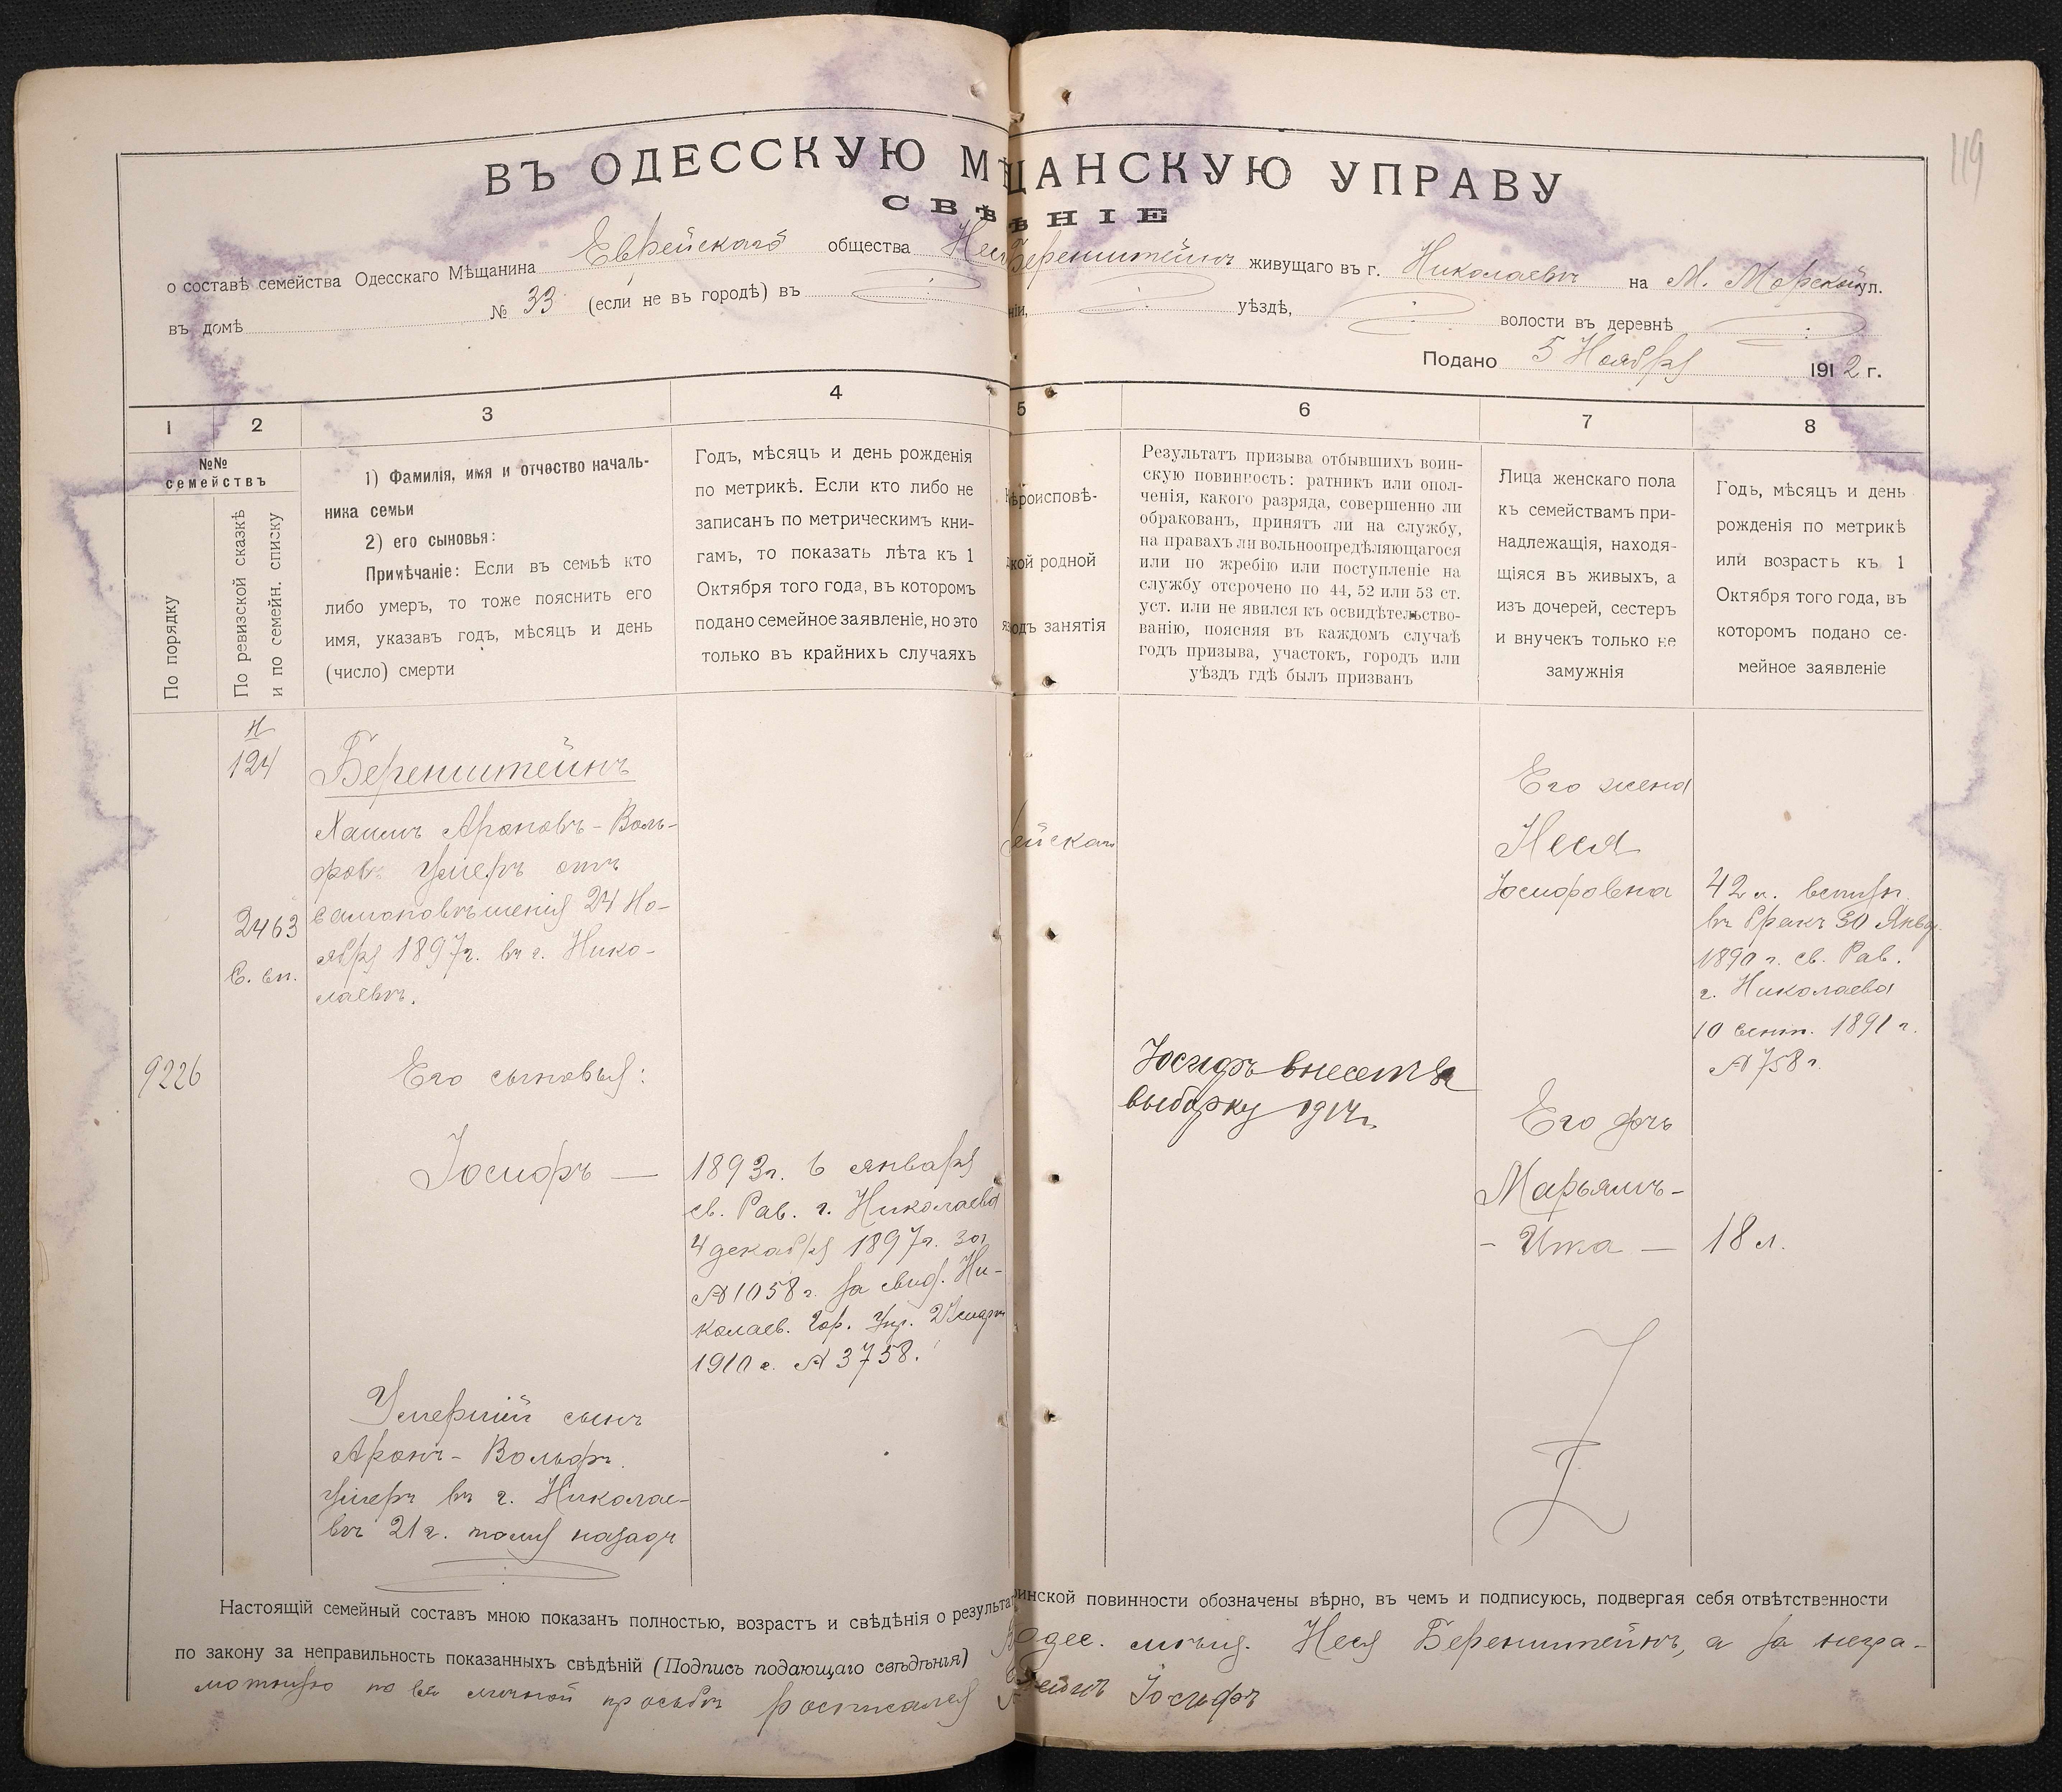 119
ВЪ ОДЕССКУЮ МѢЩАНСКУЮ УПРАВУ
СВѢ ѢНІЕ
о составѣ семейства Одесскаго Мѣщанина Еврейскаго общества Неси Беренштейнъ живущаго въ г. Николаевѣ на М. Морской ул.
въ домѣ № 33 (если не въ городѣ) въ ніи, уѣздѣ, волости въ деревнѣ
Подано 5 Ноября 1912 г.
1 2 3 4 5 6 7 8
№№
семействъ
По порядку
По ревизской сказкѣ
и по семейн. списку
1) Фамилія, имя и отчество началь-
ника семьи
2) его сыновья:
Примѣчаніе: Если въ семьѣ кто
либо умеръ, то тоже пояснить его
имя, указавъ годъ, мѣсяцъ и день
(число) смерти
Годъ, мѣсяцъ и день рожденія
по метрикѣ. Если кто либо не
записанъ по метрическимъ кни-
гамъ, то показать лѣта къ 1
Октября того года, въ которомъ
подано семейное заявленіе, но это
только въ крайнихъ случаяхъ
ѣроисповѣ-
кой родной
одъ занятія
Результатъ призыва отбывшихъ воин-
скую повинность: ратникъ или опол-
ченія, какого разряда, совершенно ли
обракованъ, принятъ ли на службу,
на правахъ ли вольноопредѣляющагося
или по жребію или поступленіе на
службу отсрочено по 44, 52 или 53 ст.
уст. или не явился къ освидѣтельство-
ванію, поясняя въ каждомъ случаѣ
годъ призыва, участокъ, городъ или
уѣздъ гдѣ былъ призванъ
Лица женскаго пола
къ семействамъ при-
надлежащія, находя-
щіяся въ живыхъ, а
изъ дочерей, сестеръ
и внучекъ только не
замужнія
Годъ, мѣсяцъ и день
рожденія по метрикѣ
или возрастъ къ 1
Октября того года, въ
которомъ подано се-
мейное заявленіе
9226
Н
124
2463
С. сп.
Беренштейнъ
Хаимъ Ароновъ-Воль-
фовъ Умеръ отъ
самоповѣшенія 24 Но-
ября 1897г. въ г. Нико-
лаевѣ.
Его сыновья:
Іосифъ —
Умершій сынъ
Аронъ-Вольфъ.
Умеръ въ г. Николае-
вѣ 21 г. тому назадъ
1893г. 6 января
св. Рав. г. Николаева
4 декабря 1897г. за
№1058г. за свид. Ни-
колаев. Гор. Упр. 2 марта
1910г. № 3758.
ейскаг
Іосифъ внесенъ въ
выборку 1914г.
Его жена
Неся
Іосифовна
Его дочь
Марьямъ-
- Ита —
42 л. вступ.
въ бракъ 30 Янв.
1890 г. св. Рав.
г. Николаева
10 сент. 1891 г.
№758г.
18 л.
Настоящій семейный составъ мною показанъ полностью, возрастъ и свѣдѣнія о результат инской повинности обозначены вѣрно, въ чемъ и подписуюсь, подвергая себя отвѣтственности
по закону за неправильность показанныхъ свѣдѣній (Подпись подающаго свѣдѣнія) Одес. мѣщ. Неся Беренштейнъ, а за негра-
мотную по ея личной просьбѣ росписался ейнъ Іосифъ